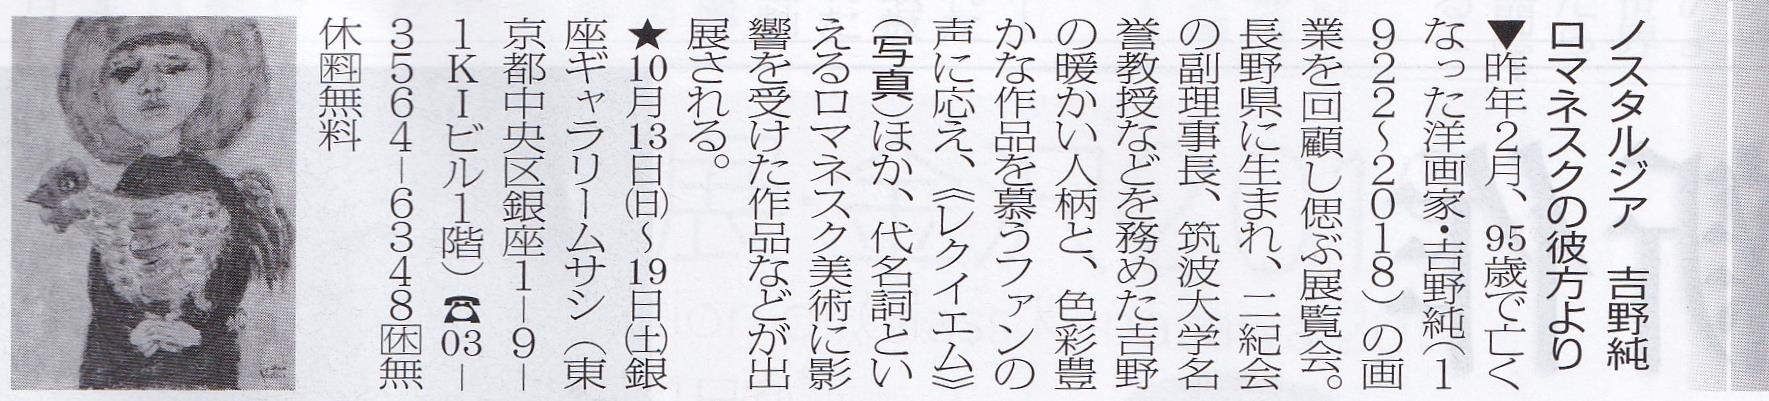 ノスタルジア　吉野純
ロマネスクの彼方より
▼昨年2月、95歳で亡く
なった洋画家・吉野純(1
922〜2018)の画
業を回顧し偲ぶ展覧会。
長野県に生まれ、二紀会
の副理事長、筑波大学名
誉教授などを務めた吉野
の暖かい人柄と、色彩豊
かな作品を慕うファンの
声に応え、《レクイエム》
(写真)ほか、代名詞とい
えるロマネスク美術に影
響を受けた作品などが出
展される。
★10月13日(日)〜19日(土)銀
座ギャラリームサシ(東
京都中央区銀座1-9-
1KIビル1階)☎03-
3564-6348休無
休料無料